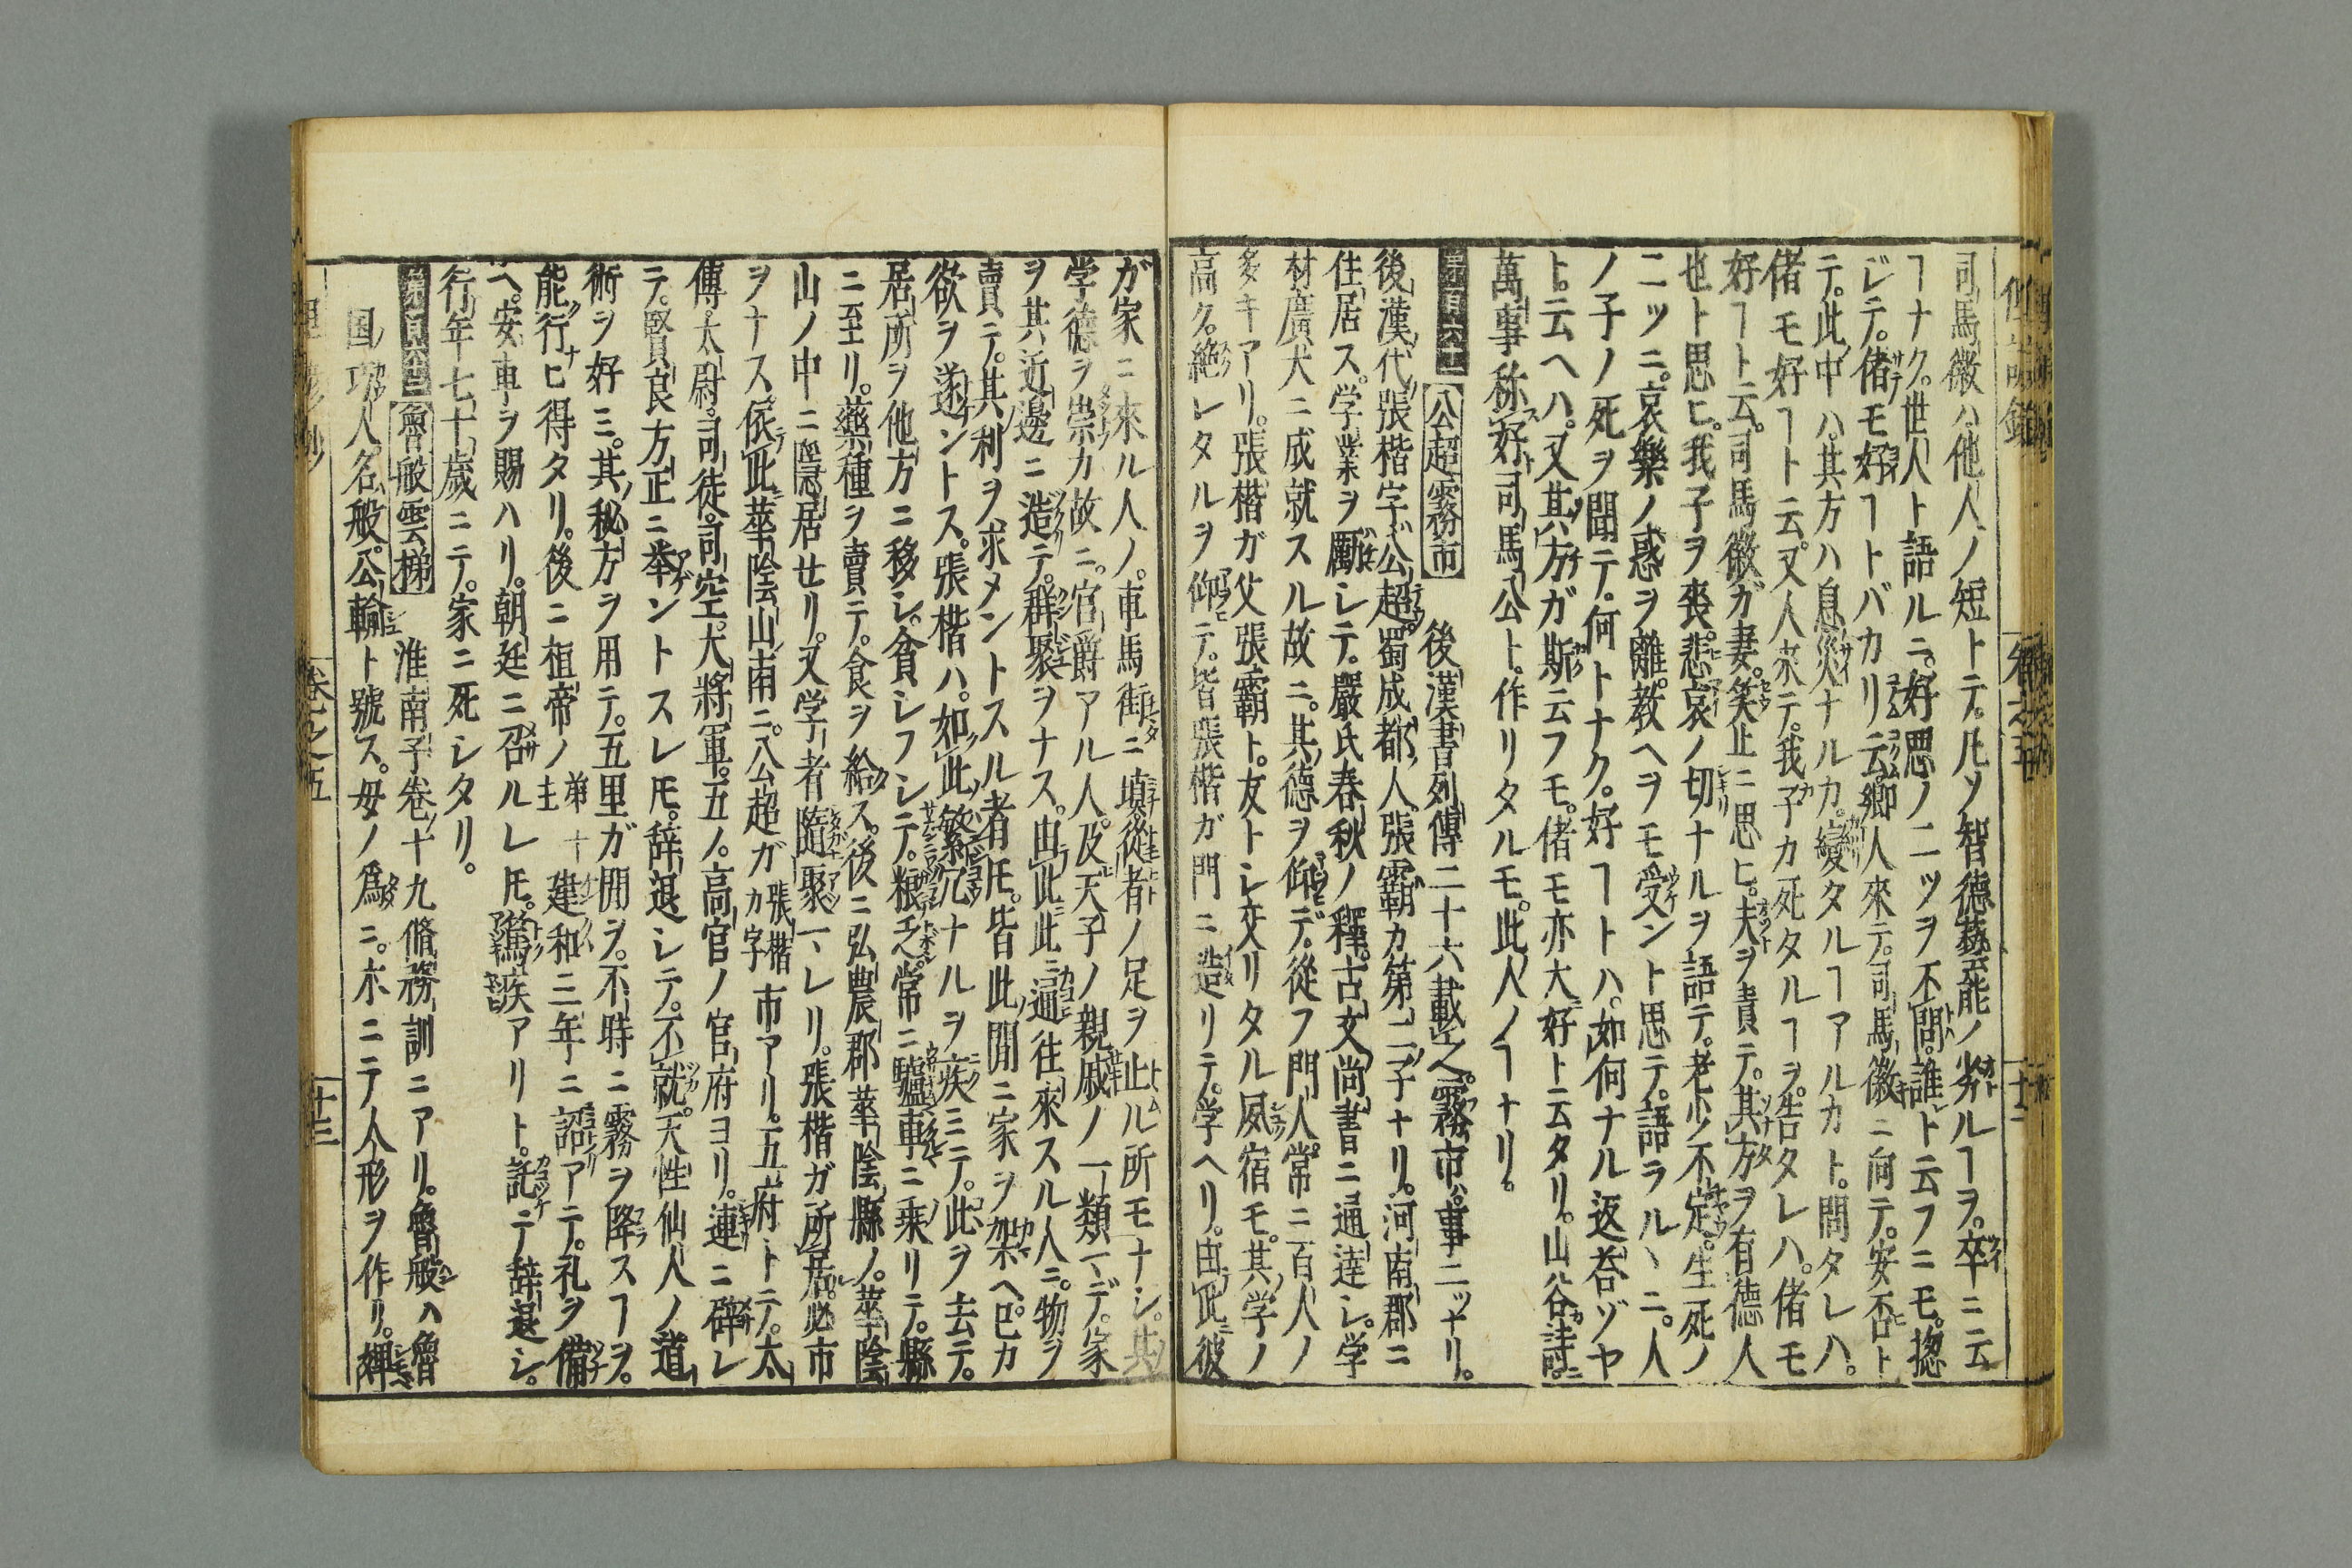 司馬徽ハ他人ノ短トテ。凡ソ智德藝能ノ劣ルヿヲ。卒ニ云
ヿナク。世人ト語ルニ。好思ノ二ッヲ不問。誰ト云フニモ。摠
ジテ。偖モ好ヿトバカリ云。鄉人來テ。司馬徽ニ向テ。安否ト
テ。此中ハ。其方ハ息災ナルカ。變タルヿアルカト。問タレハ。
偖モ好ヿト云。又人來テ。我子カ死タルヿヲ。告タレハ。偖モ
好ヿト云。司馬徽ガ妻。笑止ニ思ヒ。夫ヲ責テ。其方ヲ有德人
也ト思ヒ。我子ヲ喪。悲哀ノ切ナルヲ語テ。老少不定。生死ノ
二ッニ。哀樂ノ惑ヲ離。教ヘヲモ受ント思テ。語ラルヽニ。人
ノ子ノ死ヲ聞テ。何トナク。好ヿトハ。如何ナル返荅ゾヤ
ト。云ヘハ。又其方ガ斯云フモ。偖モ亦大好ト云タリ。山谷詩。
萬事称好司馬公ト。作リタルモ。此人ノヿナリ。
第百六十一 公超霧市 後漢書列傳二十六載之。霧市。事二ッナリ。
後漢代張楷字公超。蜀成都人。張霸カ第二子ナリ。河南郡ニ
住居ス。学業ヲ勵シテ。嚴氏春秋ノ釋。古文尚書ニ通達シ。学
材廣大ニ成就スル故ニ。其德ヲ仰デ。從フ門人。常ニ百人ノ
多キアリ。張楷ガ父張霸ト。友トシ交リタル夙宿モ。其学ノ
高ク。絶レタルヲ仰テ。皆張楷ガ門ニ造リテ。学ヘリ。由此彼
ガ家ニ來ル人ノ。車馬街ニ塡。從者ノ足ヲ止ル所モナシ。其
学德ヲ崇カ故ニ。官爵アル人。及天子ノ親戚ノ一類マデ。家
ヲ其近邊ニ造テ。群聚ヲナス。由此此ニ過往來スル人ニ。物ヲ
賣テ。其利ヲ求メントスル者𪜈。皆此間ニ家ヲ架ヘ。巴カ
欲ヲ遂ントス。張楷ハ。如此繁冗ナルヲ疾ミテ。此ヲ去テ。
居所ヲ他方ニ移シ。貧シフシテ。粮乏。常ニ驢車ニ乗リテ。縣
ニ至リ。藥種ヲ賣テ。食ヲ給ス。後ニ弘農郡華陰縣ノ。華陰
山ノ中ニ隱居セリ。又学者隨聚一ヽレリ。張楷ガ所居。必市
ヲナス。依此華陰山南ニ。公超ガ張楷カ字市アリ。五府トテ。太
傅。太尉。司徒。司空。大將軍。五ノ。高官ノ官府ヨリ。連ニ辟レ
テ。賢良方正ニ举ントスレ𪜈。辞退シテ。不就。天性仙人ノ道
術ヲ好ミ。其秘方ヲ用テ。五里ガ間ヲ。不時ニ霧ヲ降スヿヲ。
能行ヒ得タリ。後ニ祖帝ノ第十主建和三年ニ詔アテ。礼ヲ備
ヘ。安車ヲ賜ハリ。朝廷ニ召ルレ𪜈。篤疾アリト。託テ辞退シ。
行年七十歲ニテ。家ニ死シタリ。
第百六十二 魯般雲梯 淮南子卷十九脩務訓ニアリ。魯般ハ魯
国巧人。名般。公輸ト號ス。母ノ爲ニ。木ニテ人形ヲ作リ。婢
卷之五
十三